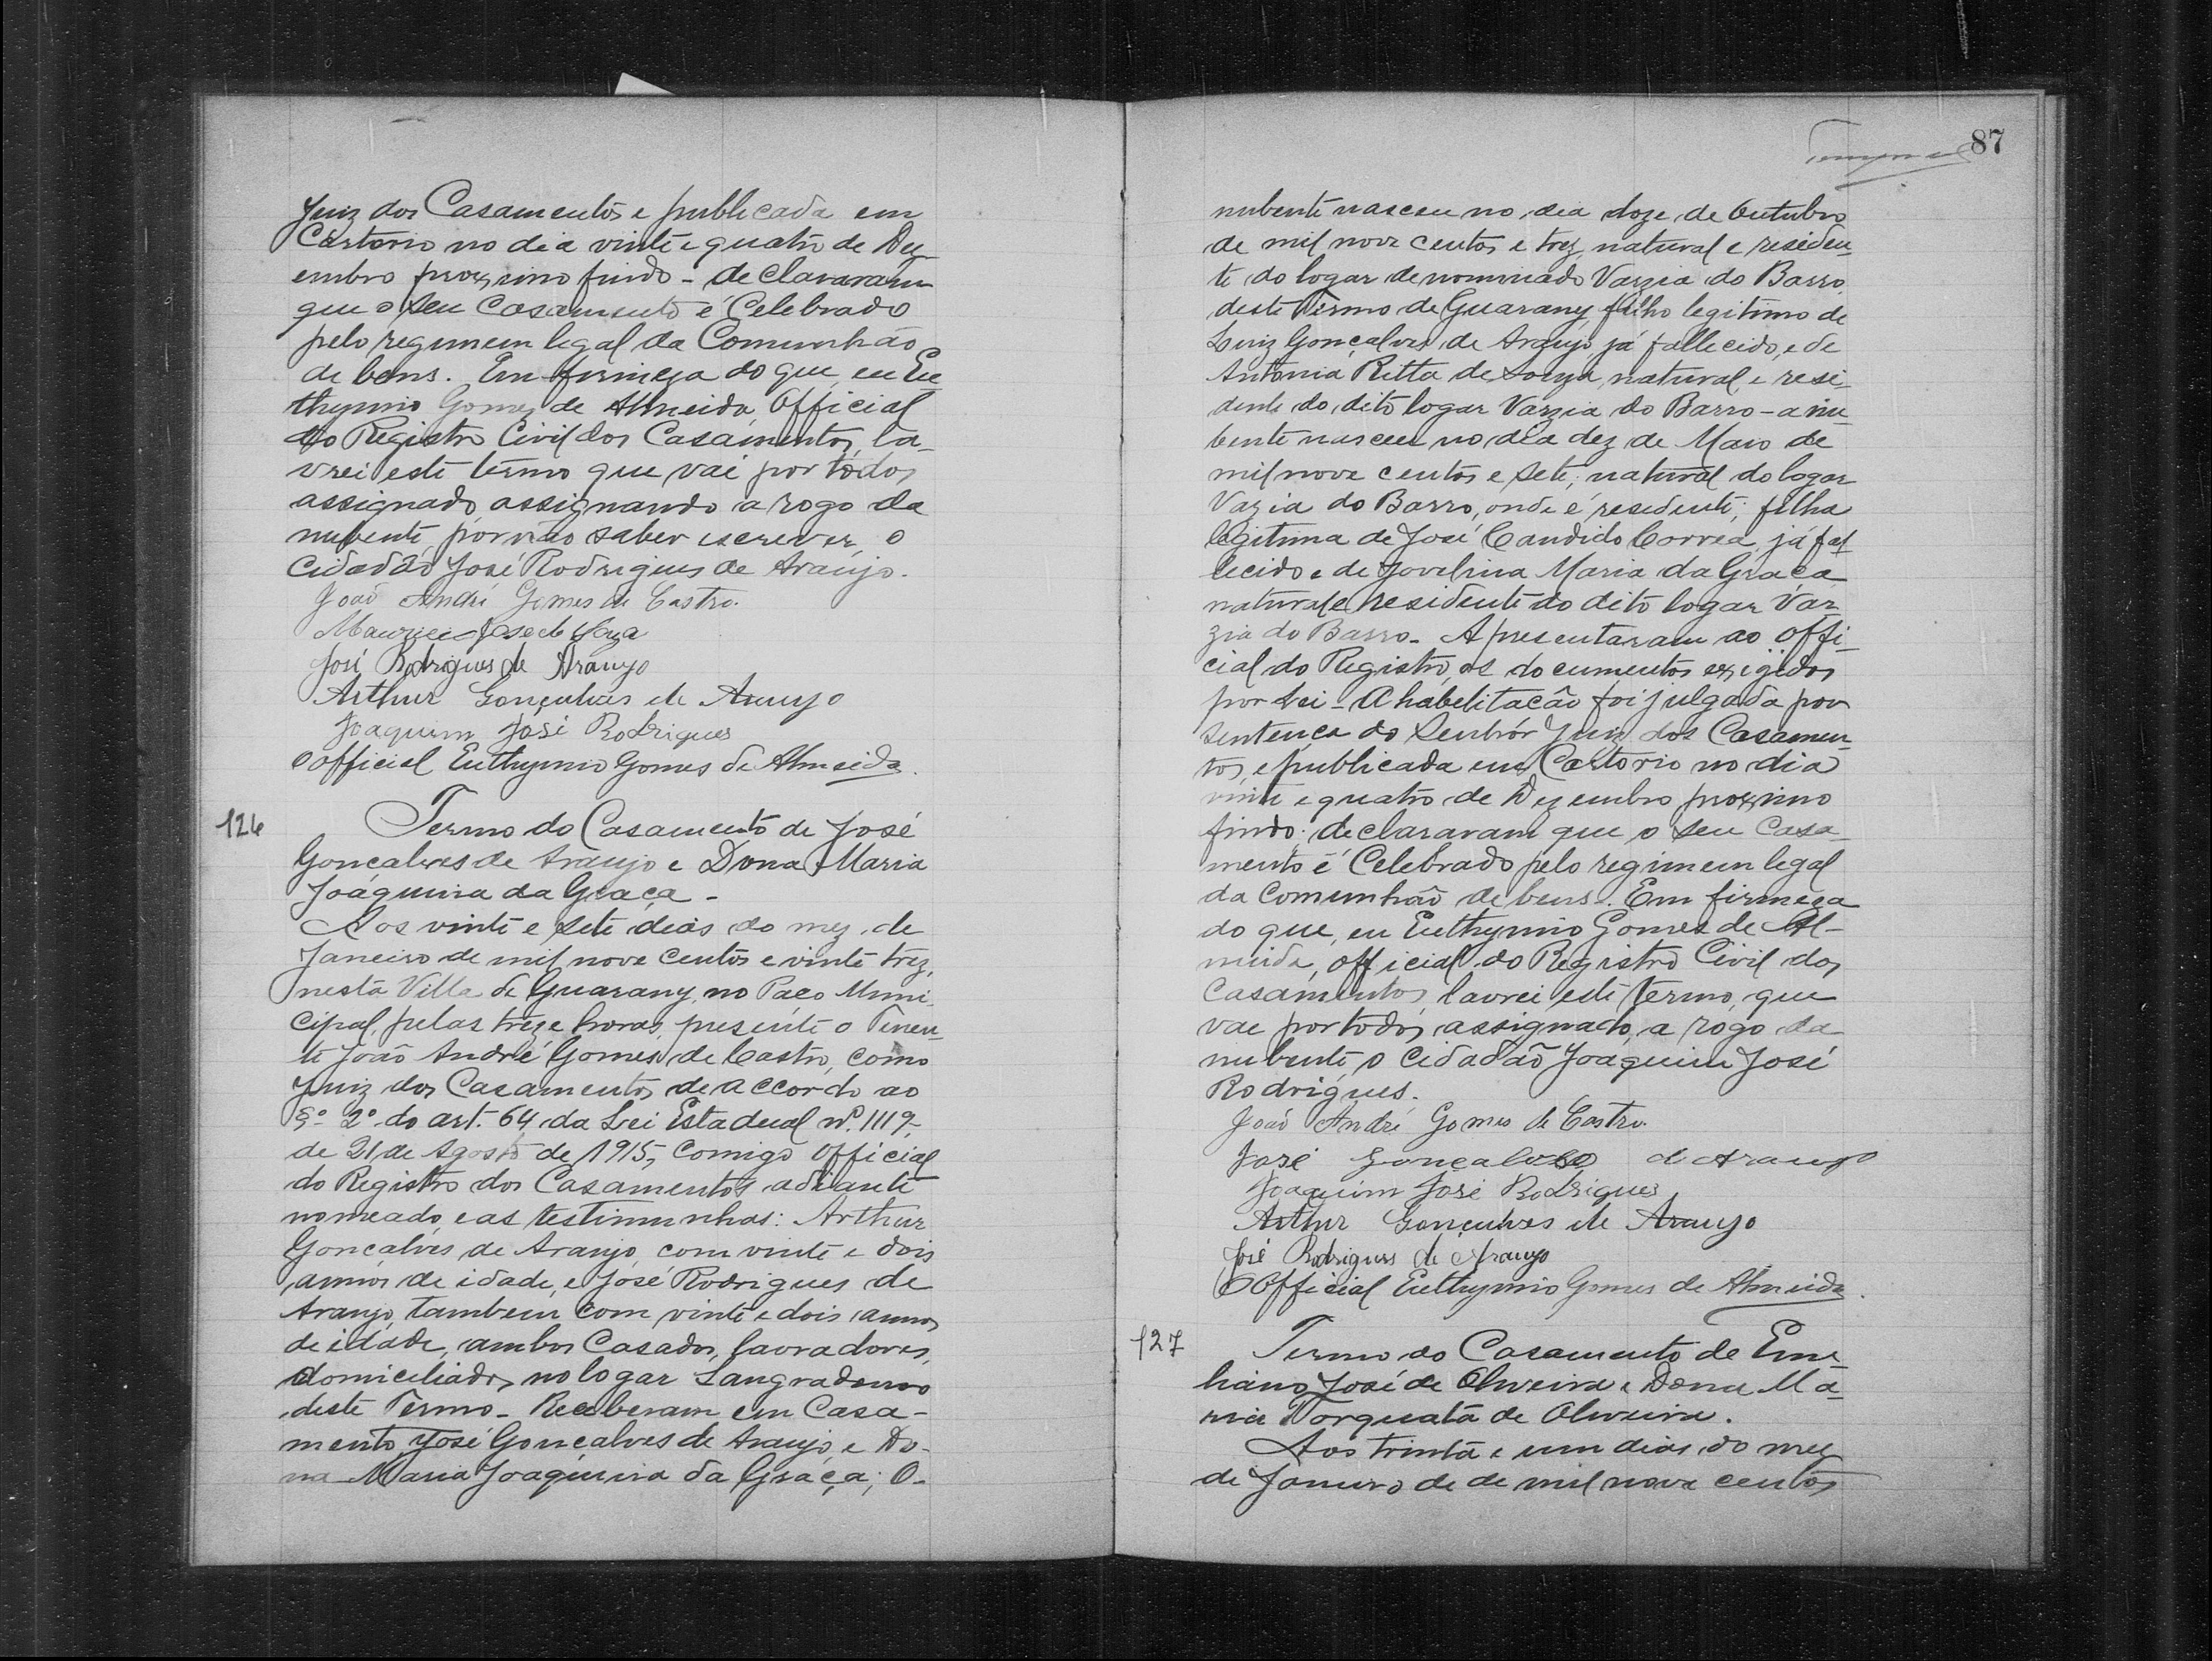 Juiz dos Casamentos e publicada em
Cartorio no dia vinte e quatro de De
embro proximo findo - declararam
que o seu Casamento é Celebrado
pelo regimem legal da Comunhão
de bens. Em firmeza do que, eu Eu
thymio Gomes de Almeida, Official
do Registro Civil dos Casamentos, la-
vrei este termo que vai por todos
assignado, assignando a rogo da
nubente por não saber escrever, o
Cidadão José Rodrigues de Araujo.
João André Gomes de Castro.
José de Soza
José Rodrigues de Araujo
Arthur Gonçalves de Araujo
Joaquim José Rodrigues
O official Euthymio Gomes de Almeida.
126
Termo do Casamento de José
Gonçalves de Araujo e Dona Maria
Joaquina da Graça -
Aos vinte e sete dias do mez de
Janeiro de mil nove centos e vinte trez,
nesta Villa de Guarany, no Paco Muni-
cipal, pelas treze horas, presente o Tenen-
te João André Gomes de Castro, como
Juiz dos Casamentos de accordo ao
§º 2º do art. 64 da Lei Estadual nº. 1119,
de 21 de Agosto de 1915, comigo official
do Registro dos Casamentos adiante
nomeado, e as testimunhas: Arthur
Gonçalves de Araujo, com vinte e dois
annos de idade, e José Rodrigues de
Araujo, tambem com vinte e dois annos
de idade, ambos Casados, lavradores,
domiciliados no logar Sangradouro
deste Termo - Receberam em Casa-
mento José Gonçalves de Araujo e Do-
na Maria Joaquina da Graça; O-
87
nubente nasceu no dia doze de Outubro
de mil nove centos e trez, natural e residen-
te do logar denominado Varzia do Barro,
deste Termo de Guarany, filho legitimo de
Luiz Gonçalves de Araujo, já fallecido, e de
Antonia Ritta de Souza, natural e resi-
dente do dito logar Varzia do Barro - a nu
bente nasceu no dia dez de Maio de
mil nove centos e sete; natural do logar
Vazia do Barro, onde é residente; filha
legitima de José Candido Correa, já fal
lecido e de Jovelina Maria da Graça
natural e residente do dito logar Var
zia do Barro - Apresentaram ao offi-
cial do Registro, os documentos exigidos
por Lei - A habelitacão foi julgada por
sentença do Senhór Juiz dos Casamen-
tos, e publicada em Cartorio no dia
vinte e quatro de Dezembro proximo
findo; declararam que o seu Casa-
mento é Celebrado pelo regimem legal
da Comunhão de bens. Em firmeza
do que, eu Euthymio Gomes de Al-
meida, official do Registro Civil dos
Casamentos, lavrei este termo, que
vae por todos assignado, a rogo da
nubente, o Cidadão Joaquim José
Rodrigues.
João André Gomes de Castro.
José Gonçalves de Araujo
Joaquim José Rodrigues
Arthur Gonçalves de Araujo
José Rodrigues de Araujo
O Official Euthymio Gomes de Almeida.
127
Termo do Casamento de Emi-
liano José de Oliveira e Dona Ma-
ria Torquata de Oliveira.
Aos trinta e um dias do mez
de Janeiro de de mil nove centos